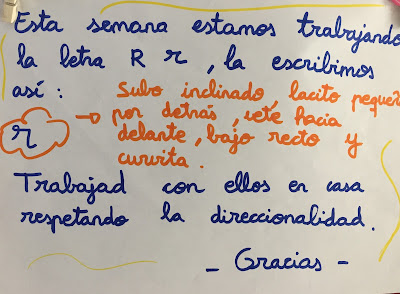 Esta semana estamos trabajando
la letra R r, la escribimos
así :
Subo inclinado lacito pequeñ
por detrás, vete hacia
delante, bajo recto y
curvita.
r
Trabajad con ellos en casa
respetando la direccionalidad.
- Gracias -